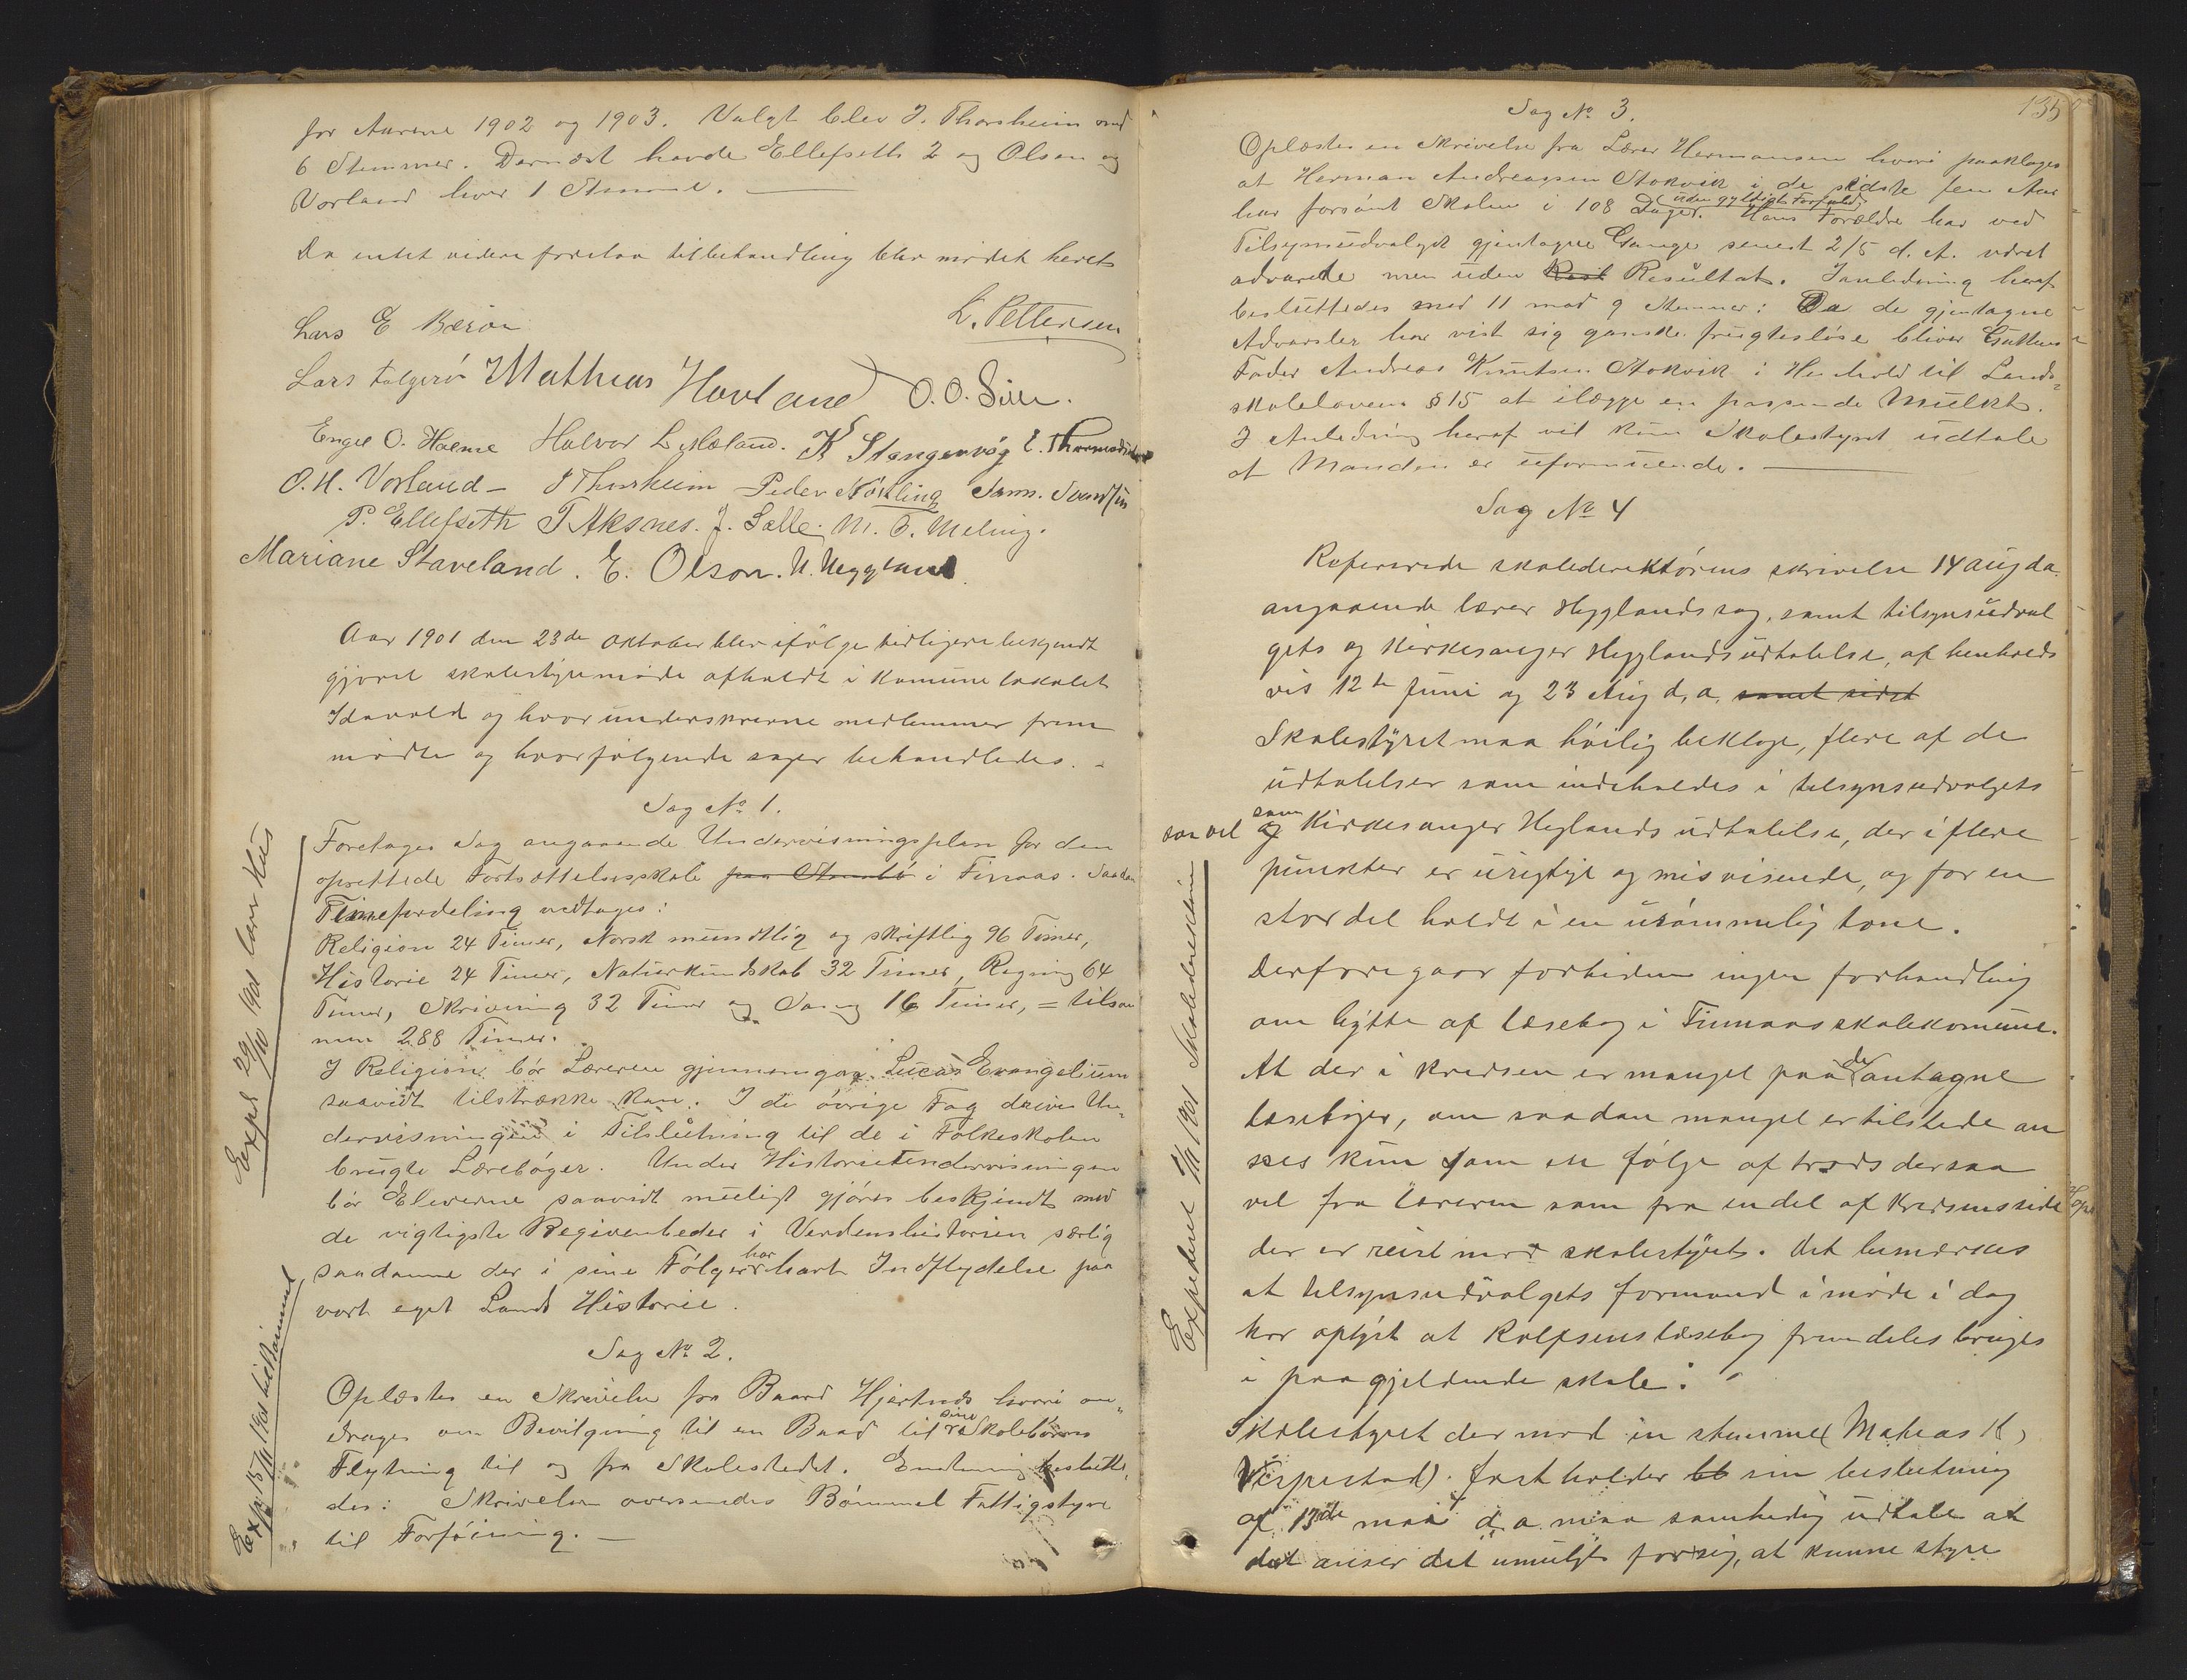 for Aarene 1902 og 1903. Valgt blev J. Thorsheim med
6 Stemmer. Dernæst havde Ellefseth 2 og Olsen og
Vorland hver 1 Stemme.
Da intet videre forelaa til behandling blev mødet hevet
L. Pettersen
Lars E Berøe
Lars Folgerø Mathias Hovland O. O. Sille.
Engel O. Holme Halvor L. Mæland. K Stangervåg E. Thormodsen
O. H. Vorland – J Thorsheim Peder Nörling Sam.
P. Ellefseth T Aksnes. J. Sælle. M. O. Meling.
Mariane Staveland. E. Olson. N. Heggland.
Aar 1901 den 23de oktober blev ifölge tidligere bekjendt
gjørel skolestyremöde afholdt i Kommune lokalet
Idavold og hvor underskrevne medlemmer frem
mödte og hvor følgende sager behandledes. -
Sag No 1.
Foretages Sag angaaende Undervisningsplan for den
oprettede Fortsættelsesskole i Finnaas. Saadan
Timefordeling vedtages:
Religion 24 Timer, Norsk mundtlig og skriftlig 96 Timer,
Historie 24 Timer, Naturkundskab 32 Timer, Regning 64
Timer, Skrivning 32 Timer og Sang 16 Timer, = tilsam
men 288 Timer.
I Religion bør Læreren gjennemgaa Lucas Evangelium
saavidt tilstrække kan. I de övrige Fag drives Un-
dervisningen i Tilslutning til de i Folkeskolen
brugte Lærebøger. Under Historieundervisningen
bör Eleverne saavidt muligt gjöres beskjendt med
de vigtigste Begivenheder i Verdenshistorien særlig
saadanne der i sine Følger har havt Indflydelse paa
vort eget Lands Historie.
Sag No 2.
Oplæstes en Skrivelse fra Baard Hjertnæs hvori an-
drages om Bevilgning til en Baad til sine Skolebørns
Flytning til og fra Skolestedet. Enstemmig beslutte-
des: Skrivelsen oversendes Bömmel Fattigstyre
til Forföining. –
Exped 29/10 1901
Exp. 15/11 1901
135
Sag No 3.
Oplæstes en Skrivelse fra Lærer Hermansen hvori paaklages
at Herman Andreassen Stokvik i de sidste fem Aar
har forsömt Skolen i 108 Dager. (uden gyldigt Forfald) Hans Forældre har ved
Tilsynsudvalget gjentagne Gange senest 2/5 d. A. været
advarede men uden Resultat. I anledning heraf
besluttedes med 11 mod 9 Stemmer: Da de gjentagne
Advarsler har vist sig ganske frugtesløse bliver Guttens
Fader Andreas Knutsen Stokvik i Henhold til Lands-
skolelovens § 15 at ilægge en passende Mulkt.
I Anledning heraf vil kun Skolestyret udtale
at Manden er uformuende.
Sag No 4
Refererede skoledirektörens skrivelse 14 aug d a.
angaaende lærer Hegglands sag, samt tilsynsudval
gets og Kirkesanger Hegglands udtalelse, af henholds
vis 12te Juni og 23 Aug d, a, samt sidst
Skolestyret maa höilig beklage, flere af de
udtalelser som indeholdes i tilsynsudvalgets
saavel som Kirkesanger Heglands udtalelse, der i flere
punkter er urigtige og misvisende, og for en
stor del holdt i en usömmelig tone.
Derfore gaar fortiden ingen forhandling
om bytte af læsebog i Finnaas skolekomune.
At der i kredsen er mangel paa de antagne
læsebøger, om saadan mangel er tilstede an
sees kun som en følge af trods der saa
vel fra læreren som fra en del af kredsens side
der er reist mod skolestyret. Det bemærkes
at tilsynsudvalgets formand i möde i dag
har oplyst at Rolfsens læsebog fremdeles bruges
i paagjeldende skole.
Skolestyret der mod en stemme (Matias H,
Vespestad). fastholder sin beslutning
af 13de mai d a maa samtidig udtale at
det anser det umuligt for sig, at kunne styre
Expederet 2/11 1901 Skoledirektören